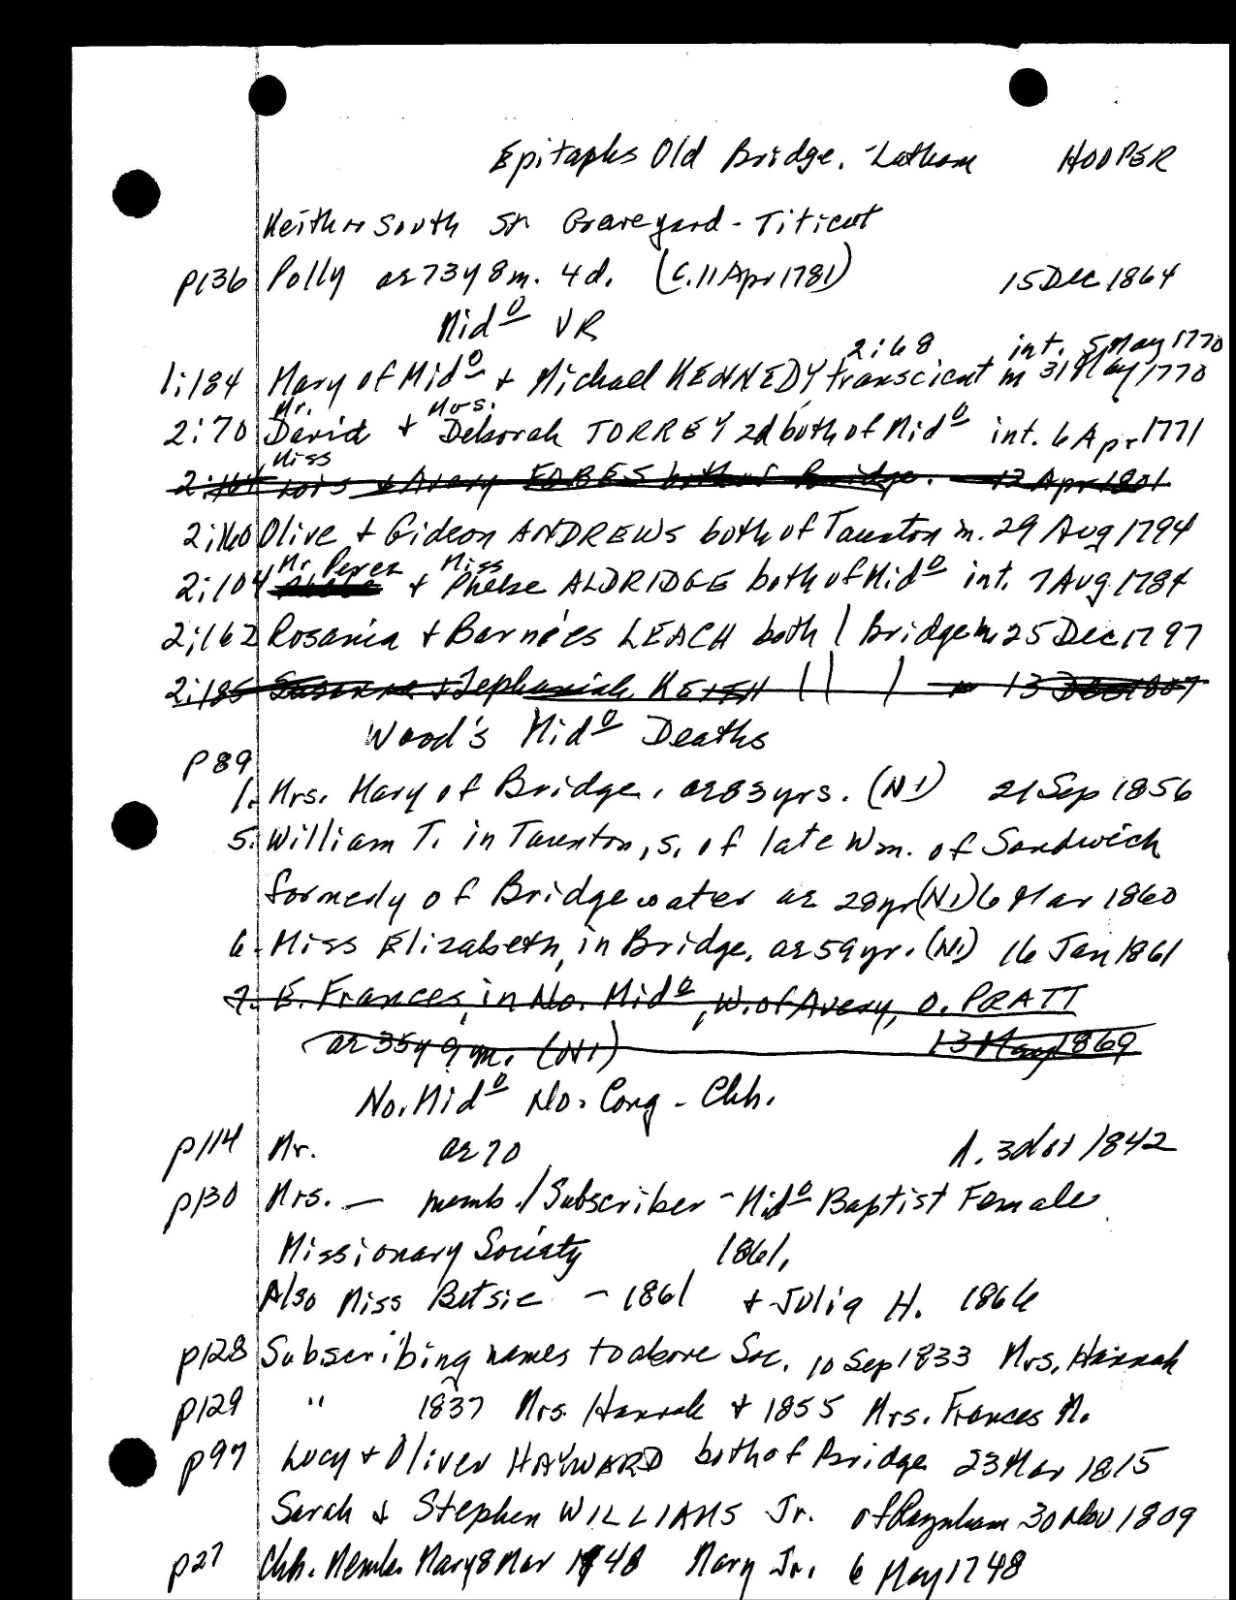 Epitaphs Old Bridge. - Latham HOOPER
Keith or South St. Graveyard - Titicut
p136 Polly ae 73y 8m. 4d. (c. 11 Apr 1781) 15 Dec 1864
Mido VR
2:68 int. 5 May 1770
1:184 Mary of Mido + Michael KENNEDY transcient m 31 May 1770
Mr. Mrs.
2:70 David + Deborah TORREY 2d both of Mido int. 6 Apr 1771
Miss
2:164 Lois + Avery FOBES both of Bridge. 12 Apr 1801
2:160 Olive + Gideon ANDREWS both of Taunton m. 29 Aug 1794
Mr. Perez Miss
2:104 + Phebe ALDRIDGE both of Mido int. 7 Aug 1784
2:162 Rosania + Barnees LEACH both / Bridge m 25 Dec 1797
2:185 Susanna + Jephaniah KEITH 11 / m 13 Dec 1807
Wood's Mido Deaths
p89
1. Mrs. Mary of Bridge. ae 83 yrs. (N1) 21 Sep 1856
5. William T. in Taunton, s. of late Wm. of Sandwich
formerly of Bridgewater ae 28yr (N1) 6 Mar 1860
6. Miss Elizabeth, in Bridge. ae 59yr. (N1) 16 Jan 1861
7. E. Frances, in No. Mido, w. of Avery, o. PRATT
ae 35y 9m. (N1) 13 May 1869
No. Mido No. Cong - Chh.
p114 Mr. ae 70 d. 3 1842
p130 Mrs. — memb./Subscriber - Mido Baptist Female
Missionary Society 1861,
Also Miss Betsie - 1861 + Julia H. 1866
p128 Subscribing names to above Soc. 10 Sep 1833 Mrs. Hannah
p129 " 1837 Mrs. Hannah + 1855 Mrs. Frances M.
p97 Lucy + Oliver HAYWARD both of Bridge 23 Mar 1815
Sarah + Stephen WILLIAMS Jr. of Raynham 30 Nov 1809
p27 Chh. Memb. Mary 8 Mar 1748 Mary Jr. 6 May 1748